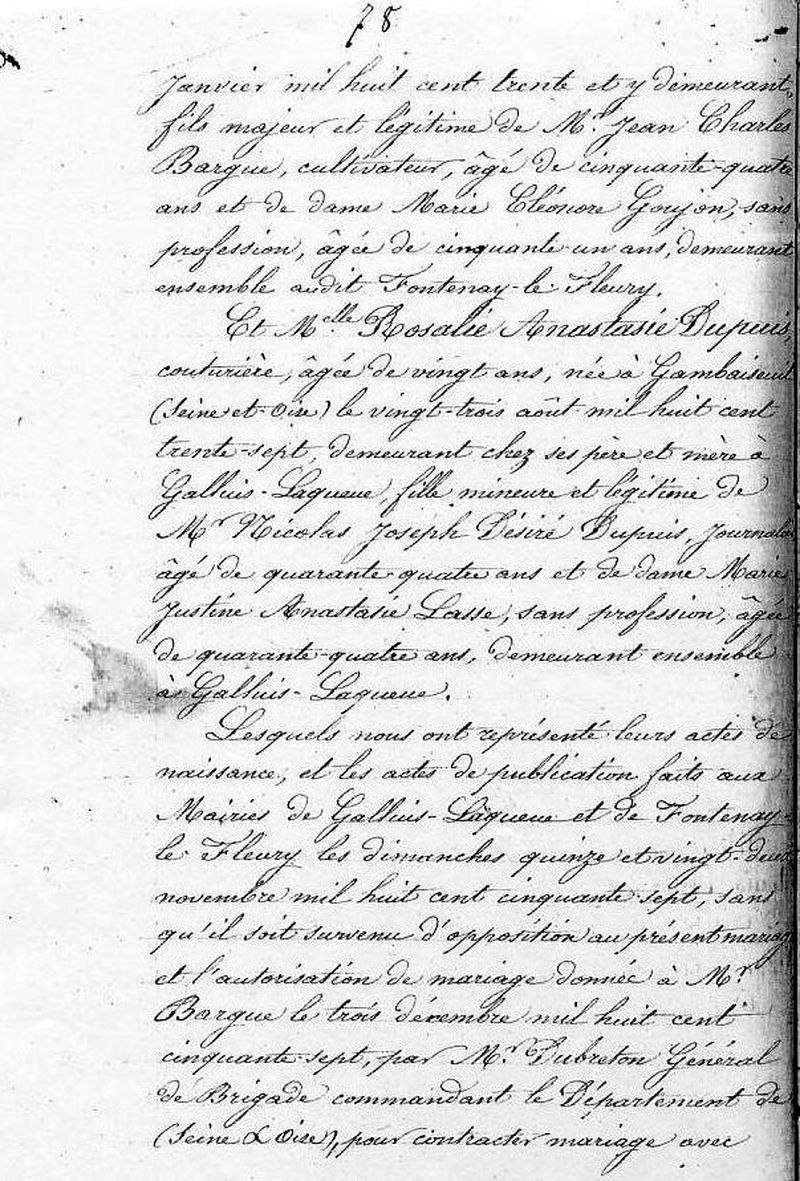 78
Janvier mil huit cent trente et y demeurant,
fils majeur et légitime de Mr. Jean Charles
Bargue, cultivateur, âgé de cinquante-quatre
ans et de dame Marie Eléonore Goujon, sans
profession, âgée de cinquante-un ans, demeurant
ensemble audit Fontenay-le-Fleury.
Et Melle Rosalie Anastasie Dupuis,
couturière, âgée de vingt ans, née à Gambaiseuil
(Seine-et-Oise) le vingt-trois août mil huit cent
trente-sept, demeurant chez ses père et mère à
Galluis-Laqueue, fille mineure et légitime de
Mr Nicolas Joseph Désiré Dupuis, Journalier
âgé de quarante-quatre ans et de dame Marie
Justine Anastasie Lasse, sans profession, âgée
de quarante-quatre ans, demeurant ensemble
à Galluis-Laqueue.
Lesquels nous ont représenté leurs actes de
naissance, et les actes de publication faits aux
Mairies de Galluis-Laqueue et de Fontenay-
le-Fleury les dimanches quinze et vingt-deux
novembre mil huit cent cinquante sept, sans
qu'il soit survenu d'opposition au présent mariage
et l'autorisation de mariage donnée à Mr
Bargue le trois décembre mil huit cent
cinquante-sept, par Mr. Dubreton Général
de Brigade commandant le Département de
(Seine & Oise), pour contracter mariage avec